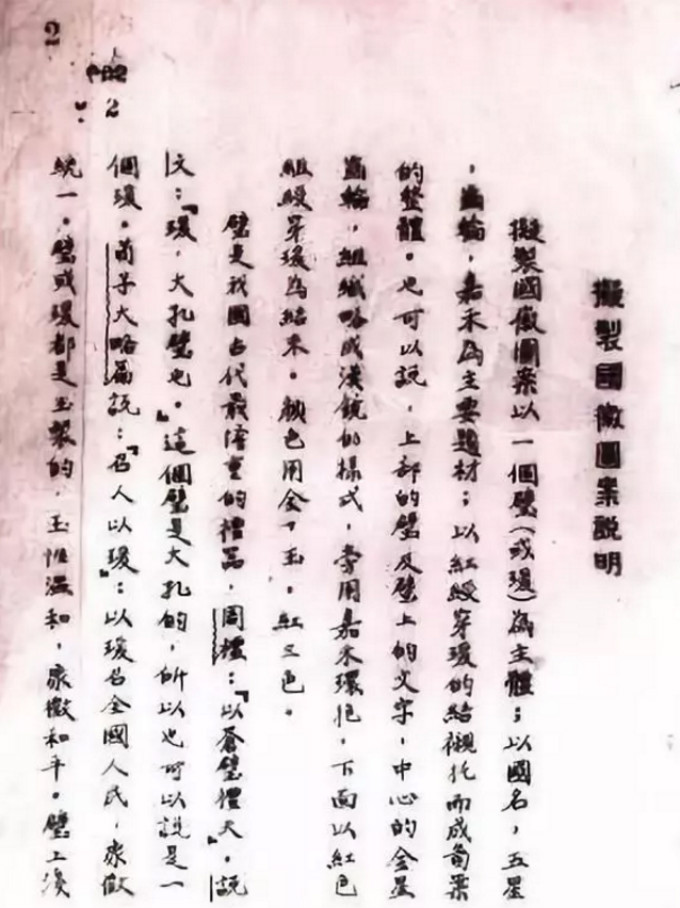 2
2
擬製國徽圖案說明
擬製國徽圖案以一個璧(或瑗)為主體;以國名,五星
,齒輪,嘉禾為主要題材;以紅綬穿瑗的結襯托而成圖案
的整體。也可以說,上部的璧及璧上的文字,中心的金星
齒輪,組織略成漢鏡的樣式,旁用嘉禾環抱,下面以紅色
組綬穿瑗為結束。顏色用金、玉、紅三色。
璧是我國古代最隆重的禮器,周禮:「以蒼璧禮天」。說
文:「瑗,大孔璧也。」這個璧是大孔的,所以也可以說是一
個瑗。荀子大略篇說:「召人以瑗」:以瑗召全國人民,象徵
統一。璧或瑗都是玉製的,玉性溫和,象徵和平。璧上淺